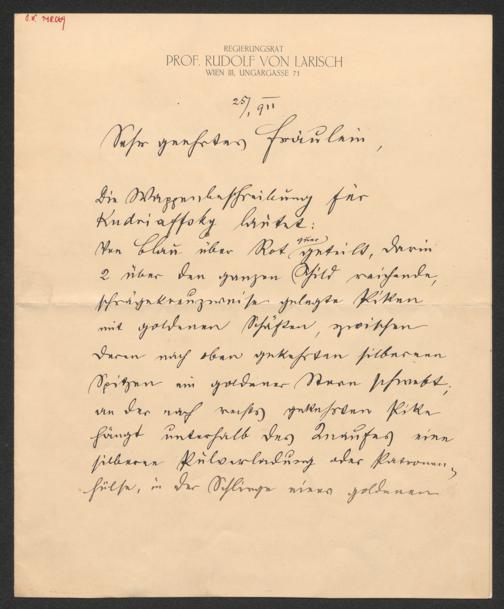 REGIERUNGSRAT
PROF. RUDOLF VON LARISCH
WIEN III, UNGARGASSE 71
25/I 911
Sehr geehrtes Fräulein,
Die Wappenbeschreibung für
Kudriaffsky lautet:
Von blau über Rot quer geteilt, darin
2 über den ganzen Schild reichende,
schrägekreuzweise gelegte Piken
mit goldenen Schäften, zwischen
deren nach oben gekehrten silbernen
Spitzen ein goldener Stern schwebt;
an der nach rechts gekehrten Pike
hängt unterhalb des Knaufes eine
silberne Pulverladung oder Patronen-
hülse, in der Schlinge eines goldenen